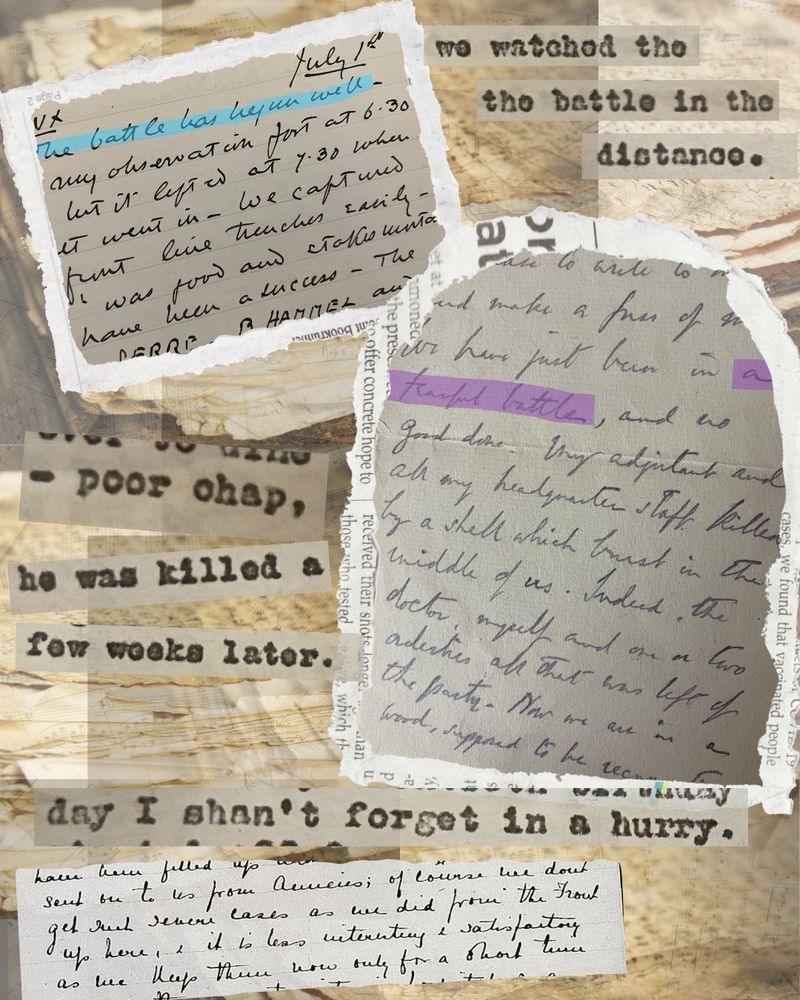 July 1st
The battle has begun well-
my observation post at 6.30
but it lifted at 7.30 when
it went in - we captured
front line trenches easily -
was good and
have been a success - The
SERRE, B HAMMEL and
we watched the
the battle in the
distance.
Page 2
to write to
and make a fuss of
We have just been in a
fearful battle, and no
good done. My adjutant and
all my headquarter staff killed
by a shell which burst in the
middle of us. Indeed, the
doctor, myself and one or two
orderlies all that was left of
the party. Now we are in a
wood, supposed to be
the pres
to offer concrete hope to
received their shots longer
those who tested
which
cases, we found that vaccinated people
ever to dine
- poor chap,
he was killed a
few weeks later.
birthday
day I shan't forget in a hurry.
have been filled up and
sent on to us from Amiens; of course we dont
get such severe cases as we did from the Front
up here, & it is less interesting & satisfactory
as we keep them now only for a short time